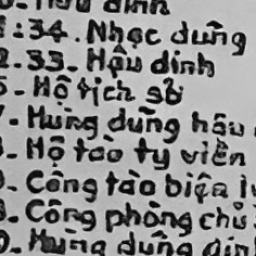 :34. Nhạc dũng
2.33- Hậu dinh
- Hộ tịch sở
- Hùng dũng hậu
- Hộ tào ty viên
- Công tào biện
- Công phòng chủ
- Hùng dũng